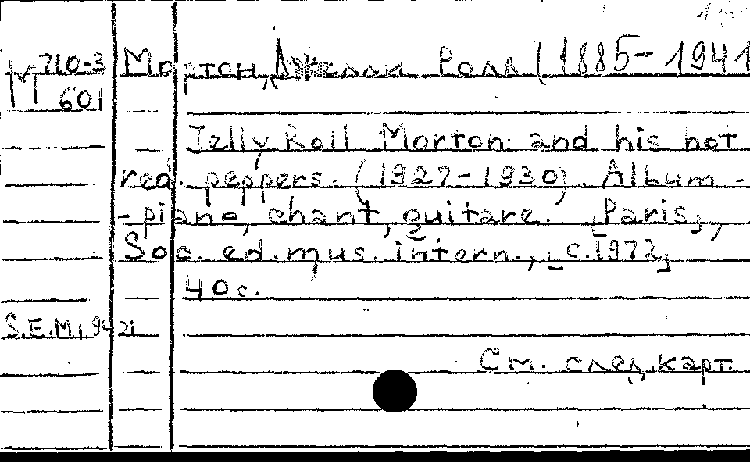 М 710-3
601
Мортон, Джелли Ролл (1885-1941
Jelly Roll Morton and his hot
red peppers. (1927-1930). Album -
- piano, chant, guitare. [Paris],
Soc. ed. mus. intern., [c.1972]
40 c.
S.E.M. 9421
См. след. карт.